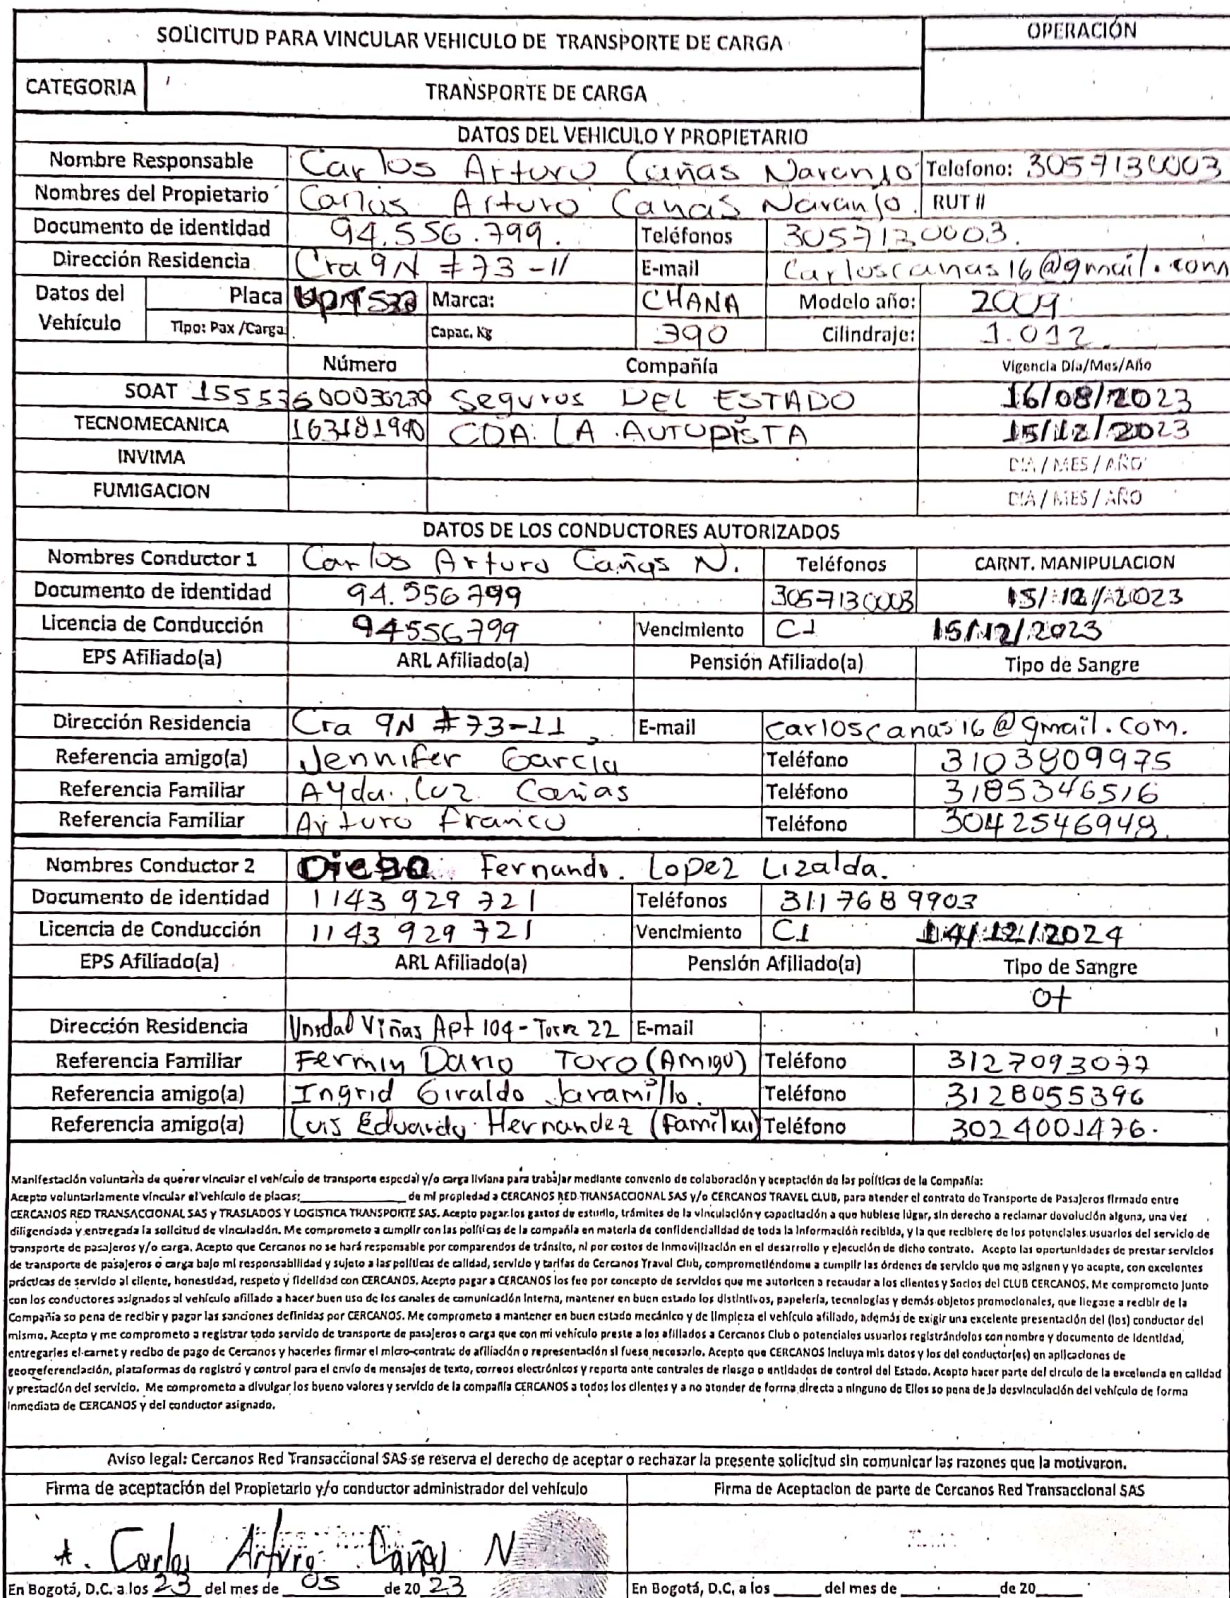 SOLICITUD PARA VINCULAR VEHICULO DE TRANSPORTE DE CARGA
OPERACIÓN
CATEGORIA
TRANSPORTE DE CARGA
DATOS DEL VEHICULO Y PROPIETARIO
Nombre Responsable Carlos Arturo Cañas Naranjo Telefono: 3057130003
Nombres del Propietario Carlos Arturo Canas Naranjo. RUT #
Documento de identidad 94.556.799. Teléfonos 3057130003.
Dirección Residencia Cra 9N #73-11 E-mail Carloscanas16@gmail.com
Datos del Vehículo Placa Marca: CHANA Modelo año: 2009
Tipo: Pax /Carga Capac. Kg 390 Cilindraje: 1.012
Número Compañía Vigencia Día/Mes/Año
SOAT Seguros DEL ESTADO 16/08/2023
TECNOMECANICA 163181940 CDA LA AUTOPISTA 15/12/2023
INVIMA DIA / MES / AÑO
FUMIGACION DIA / MES / AÑO
DATOS DE LOS CONDUCTORES AUTORIZADOS
Nombres Conductor 1 Carlos Arturo Cañas N. Teléfonos CARNT. MANIPULACION
Documento de identidad 94.556799 3057130003 15/12/2023
Licencia de Conducción 94556799 Vencimiento C1 15/12/2023
EPS Afiliado(a) ARL Afiliado(a) Pensión Afiliado(a) Tipo de Sangre
Dirección Residencia Cra 9N #73-11 E-mail carloscanas16@gmail.com.
Referencia amigo(a) Jennifer Garcia Teléfono 3103809975
Referencia Familiar Ayda Luz Cañas Teléfono 3185346516
Referencia Familiar Arturo Franco Teléfono 3042546948
Nombres Conductor 2 Diego Fernando. Lopez Lizalda.
Documento de identidad 1143 929 721 Teléfonos 3117689903
Licencia de Conducción 1143 929 721 Vencimiento C1 14/12/2024
EPS Afiliado(a) ARL Afiliado(a) Pensión Afiliado(a) Tipo de Sangre
O+
Dirección Residencia Unidad Viñas Apt 104 - Torre 22 E-mail
Referencia Familiar Fermin Dario Toro (Amigo) Teléfono 3127093077
Referencia amigo(a) Ingrid Giraldo Jaramillo. Teléfono 3128055396
Referencia amigo(a) Luis Eduardo Hernandez (Familiar) Teléfono 3024001476.
Manifestación voluntaria de querer vincular el vehículo de transporte especial y/o carga liviana para trabajar mediante convenio de colaboración y aceptación de las políticas de la Compañía:
Acepto voluntariamente vincular el vehículo de placas:____________ de mi propiedad a CERCANOS RED TRANSACCIONAL SAS y/o CERCANOS TRAVEL CLUB, para atender el contrato de Transporte de Pasajeros firmado entre
CERCANOS RED TRANSACCIONAL SAS y TRASLADOS Y LOGISTICA TRANSPORTE SAS. Acepto pagar los gastos de estudio, trámites de la vinculación y capacitación a que hubiese lúgar, sin derecho a reclamar devolución alguna, una vez
diligenciada y entregada la solicitud de vinculación. Me comprometo a cumplir con las políticas de la compañía en materia de confidencialidad de toda la información recibida, y la que recibiere de los potenciales usuarios del servicio de
transporte de pasajeros y/o carga. Acepto que Cercanos no se hará responsable por comparendos de tránsito, ni por costos de inmovilización en el desarrollo y ejecución de dicho contrato. Acepto las oportunidades de prestar servicios
de transporte de pasajeros o carga bajo mi responsabilidad y sujeto a las políticas de calidad, servicio y tarifas de Cercanos Travel Club, comprometiéndome a cumplir las órdenes de servicio que me asignen y yo acepte, con excelentes
prácticas de servicio al cliente, honestidad, respeto y fidelidad con CERCANOS. Acepto pagar a CERCANOS los feo por concepto de servicios que me autoricen a recaudar a los clientes y Socios del CLUB CERCANOS. Me comprometo junto
con los conductores asignados al vehículo afiliado a hacer buen uso de los canales de comunicación interna, mantener en buen estado los distintivos, papelería, tecnologías y demás objetos promocionales, que llegase a recibir de la
Compañía so pena de recibir y pagar las sanciones definidas por CERCANOS. Me comprometo a mantener en buen estado mecánico y de limpieza el vehículo afiliado, además de exigir una excelente presentación del (los) conductor del
mismo. Acepto y me comprometo a registrar todo servicio de transporte de pasajeros o carga que con mi vehículo preste a los afiliados a Cercanos Club o potenciales usuarios registrándolos con nombre y documento de identidad,
entregarles el carnet y recibo de pago de Cercanos y hacerles firmar el micro-contrato de afiliación o representación si fuese necesario. Acepto que CERCANOS incluya mis datos y los del conductor(es) en aplicaciones de
georeferenciación, plataformas de registró y control para el envío de mensajes de texto, correos electrónicos y reporte ante controles de riesgo o entidades de control del Estado. Acepto hacer parte del círculo de la excelencia en calidad
y prestación del servicio. Me comprometo a divulgar los bueno valores y servicio de la compañía CERCANOS a todos los clientes y a no atender de forma directa a ninguno de Ellos so pena de la desvinculación del vehículo de forma
inmediata de CERCANOS y del conductor asignado.
Aviso legal: Cercanos Red Transaccional SAS se reserva el derecho de aceptar o rechazar la presente solicitud sin comunicar las razones que la motivaron.
Firma de aceptación del Propietario y/o conductor administrador del vehículo Firma de Aceptacion de parte de Cercanos Red Transaccional SAS
Carlos Arturo Cañas N
En Bogotá, D.C. a los 23 del mes de 05 de 20 23 En Bogotá, D.C, a los _____ del mes de _____ de 20_____